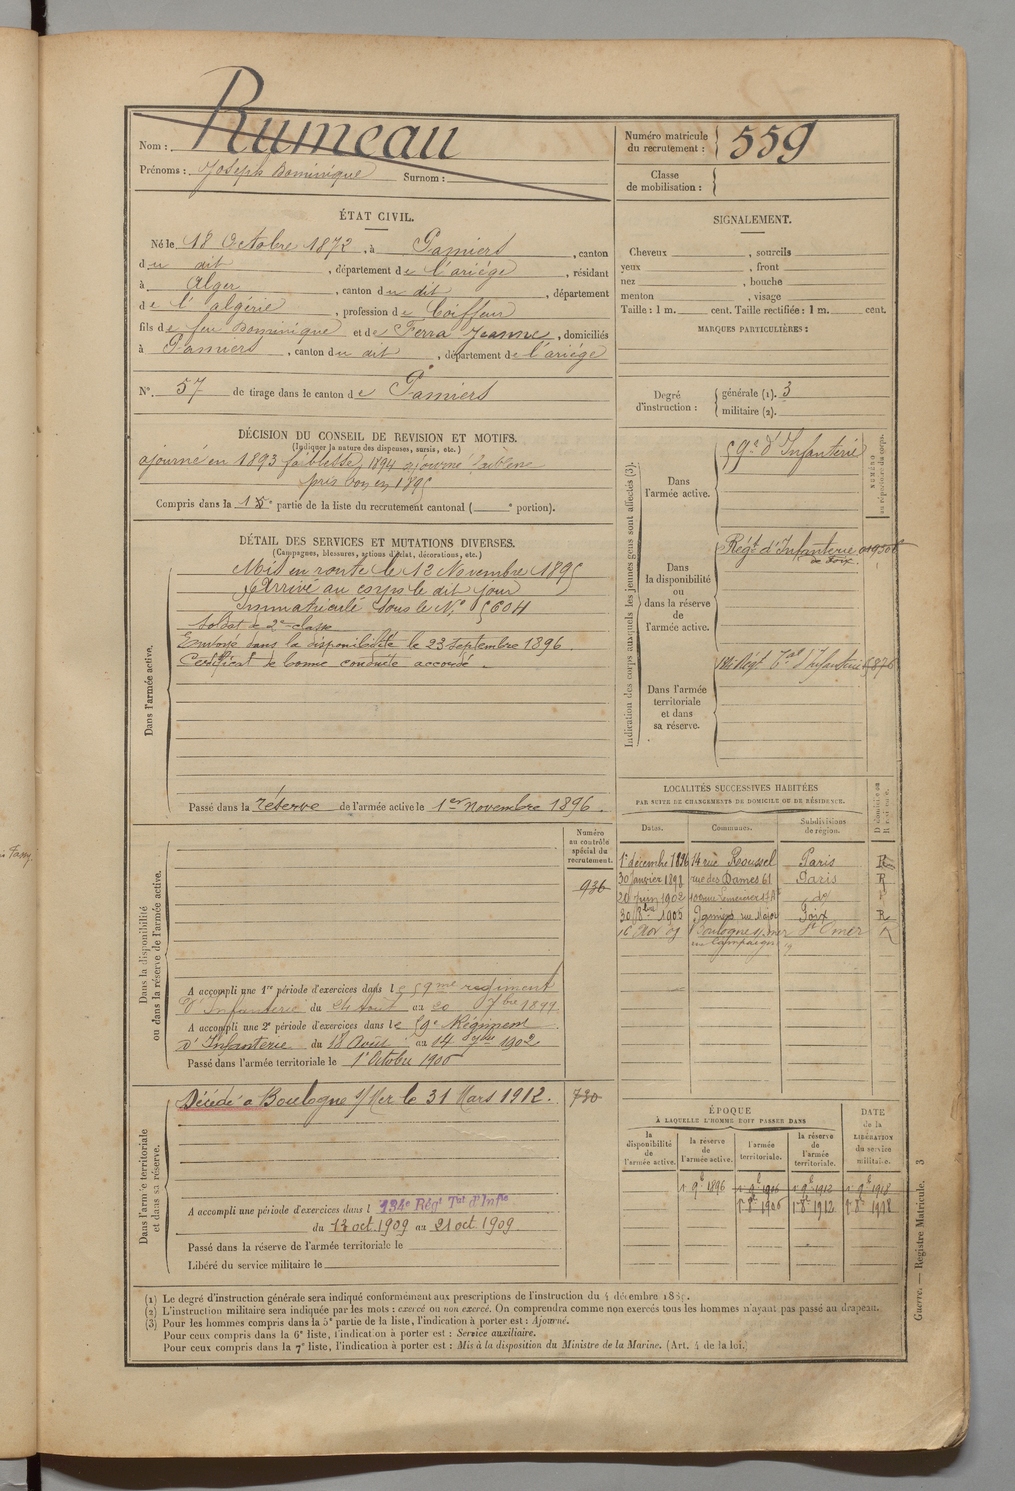 Nom : Rumeau
Prénoms : Joseph Dominique Surnom :
Numéro matricule du recrutement : 559
Classe de mobilisation :
ÉTAT CIVIL.
Né le 18 Octobre 1872, à Pamiers, canton
du dit, département de l'ariège, résidant
à Alger, canton du dit, département
de l'algérie, profession de Coiffeur
fils de feu Dominique et de Ferra Jeanne, domiciliés
à Pamiers, canton du dit, département de l'ariège
N° 57 de tirage dans le canton de Pamiers
DÉCISION DU CONSEIL DE REVISION ET MOTIFS.
(Indiquer la nature des dispenses, sursis, etc.)
ajourné en 1893 faiblesse, 1894 ajourné faiblesse
pris bon en 1895
Compris dans la 1e partie de la liste du recrutement cantonal ( e portion).
DÉTAIL DES SERVICES ET MUTATIONS DIVERSES.
(Campagnes, blessures, actions d'éclat, décorations, etc.)
Dans l'armée active.
Mis en route le 12 Novembre 1895
Arrivé au corps le dit jour
Immatriculé sous le N° 5604
Soldat de 2e classe
Envoyé dans la disponibilité le 23 septembre 1896.
Certificat de bonne conduite accordé.
Passé dans la réserve de l'armée active le 1er novembre 1896.
Dans la disponibilité ou dans la réserve de l'armée active.
Numéro au contrôle spécial du recrutement.
936
A accompli une 1re période d'exercices dans le 59me regiment
d'Infanterie du 24 Août au 20 7bre 1899
A accompli une 2e période d'exercices dans le 59e Régiment
d'Infanterie du 18 Août au 14 7bre 1902
Passé dans l'armée territoriale le 1er Octobre 1906
Dans l'armée territoriale et dans sa réserve.
Décédé à Boulogne s/Mer le 31 Mars 1912. 730
A accompli une période d'exercices dans l 134e Régt Tal d'Infie
du 13 oct. 1909 au 21 oct. 1909
Passé dans la réserve de l'armée territoriale le
Libéré du service militaire le
SIGNALEMENT.
Cheveux , sourcils
yeux , front
nez , bouche
menton , visage
Taille : 1 m. cent. Taille rectifiée : 1 m. cent.
MARQUES PARTICULIÈRES :
Degré d'instruction : générale (1). 3
militaire (2).
Indication des corps auxquels les jeunes gens sont affectés (3).
NUMÉRO au répertoire du corps.
Dans l'armée active. 59e d'Infanterie
Dans la disponibilité ou dans la réserve de l'armée active. Régt d'Infanterie
de Foix.
Dans l'armée territoriale et dans sa réserve. 134 Régt Tal d'Infanterie 5876
LOCALITÉS SUCCESSIVES HABITÉES
PAR SUITE DE CHANGEMENTS DE DOMICILE OU DE RÉSIDENCE.
Dates. Communes. Subdivisions de région. D domicile ou R résidence.
1er décembre 1896 14 rue Roussel Paris R
30 Janvier 1898 rue des Dames 61 Paris R
20 juin 1902 do
30 8bre 1905 Pamiers rue Major Foix R
16 Nov 09 Boulogne s/mer St Omer R
ÉPOQUE
À LAQUELLE L'HOMME DOIT PASSER DANS
la disponibilité de l'armée active. la réserve de l'armée active. l'armée territoriale. la réserve de l'armée territoriale. DATE de la LIBÉRATION du service militaire.
1 9b 1896 1 9b 1906 1 9b 1912 1 9b 1918
1er 8b 1906 1er 8b 1912 1er 8b 1918
(1) Le degré d'instruction générale sera indiqué conformément aux prescriptions de l'instruction du 4 décembre 1889.
(2) L'instruction militaire sera indiquée par les mots : exercé ou non exercé. On comprendra comme non exercés tous les hommes n'ayant pas passé au drapeau.
(3) Pour les hommes compris dans la 5e partie de la liste, l'indication à porter est : Ajourné.
Pour ceux compris dans la 6e liste, l'indication à porter est : Service auxiliaire.
Pour ceux compris dans la 7e liste, l'indication à porter est : Mis à la disposition du Ministre de la Marine. (Art. 4 de la loi.)
Guerre. — Registre Matricule. 3